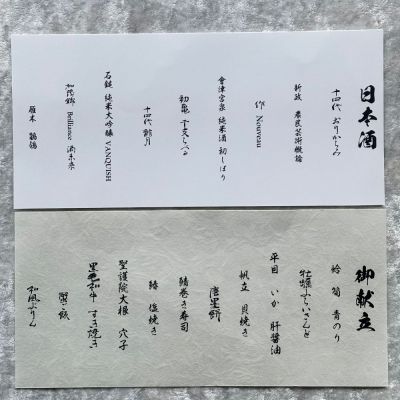 日本酒
十四代 おりからみ
新政 農民芸術概論
作 Nouveau
會津宮泉 純米酒 初しぼり
初亀
十四代
石鎚 純米大吟醸 VANQUISH
加茂錦 Brilliance 満未来
雁木 鶺鴒
御献立
蛤 筍 青のり
牡蠣ふらいさんど
平目 いか 肝醤油
帆立 貝焼き
唐墨餅
鰭巻き寿司
鰭 塩焼き
聖護院大根 穴子
黒毛和牛 すき焼き
蟹ご飯
和風ぷりん